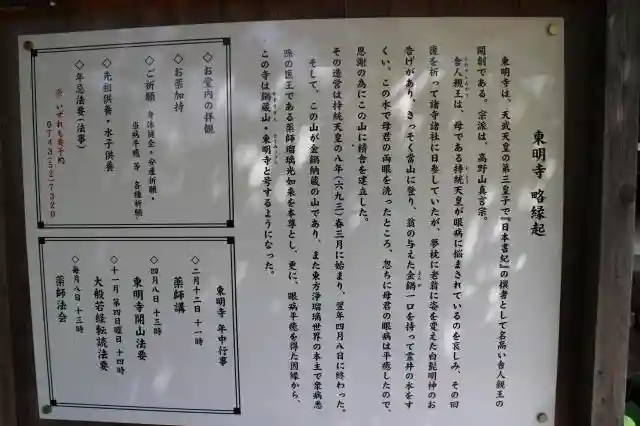 東明寺 略縁起
東明寺は、天武天皇の第三皇子で『日本書紀』の撰者として名高い舎人親王の
開創である。宗派は、高野山真言宗。
舎人親王は、母である持統天皇が眼病に悩まされているのを哀しみ、その回
復を祈って諸寺諸社に日参していたが、夢枕に老翁に姿を変えた白髭明神のお
告げがあり、さっそく当山に登り、翁の与えた金鍋一口を持って霊井の水をす
くい、この水で母君の両眼を洗ったところ、忽ちに母君の眼病は平癒したので、
恩謝の為にこの山に精舎を建立した。
その造営は持統天皇の八年（六九三）春三月に始まり、翌年四月八日に終わった。
そして、この山が金鍋納蔵の山であり、また東方浄瑠璃世界の本主で衆病悉
除の医王である薬師瑠璃光如来を本尊とし、更に、眼病平癒を得た因縁から、
この寺は鍋蔵山・東明寺と号するようになった。
◇お堂内の拝観
◇お薬加持
◇ご祈願 身体健全・安産祈願・
当病平癒 等 各種祈願
◇先祖供養・水子供養
◇年忌法要（法事）
※ いずれも要予約
0743(52)7320
東明寺 年中行事
◇二月十二日 十一時
薬師講
◇四月八日 十三時
東明寺開山法要
◇十一月 第四日曜日 十四時
大般若経転読法要
◇毎月八日 十三時
薬師法会